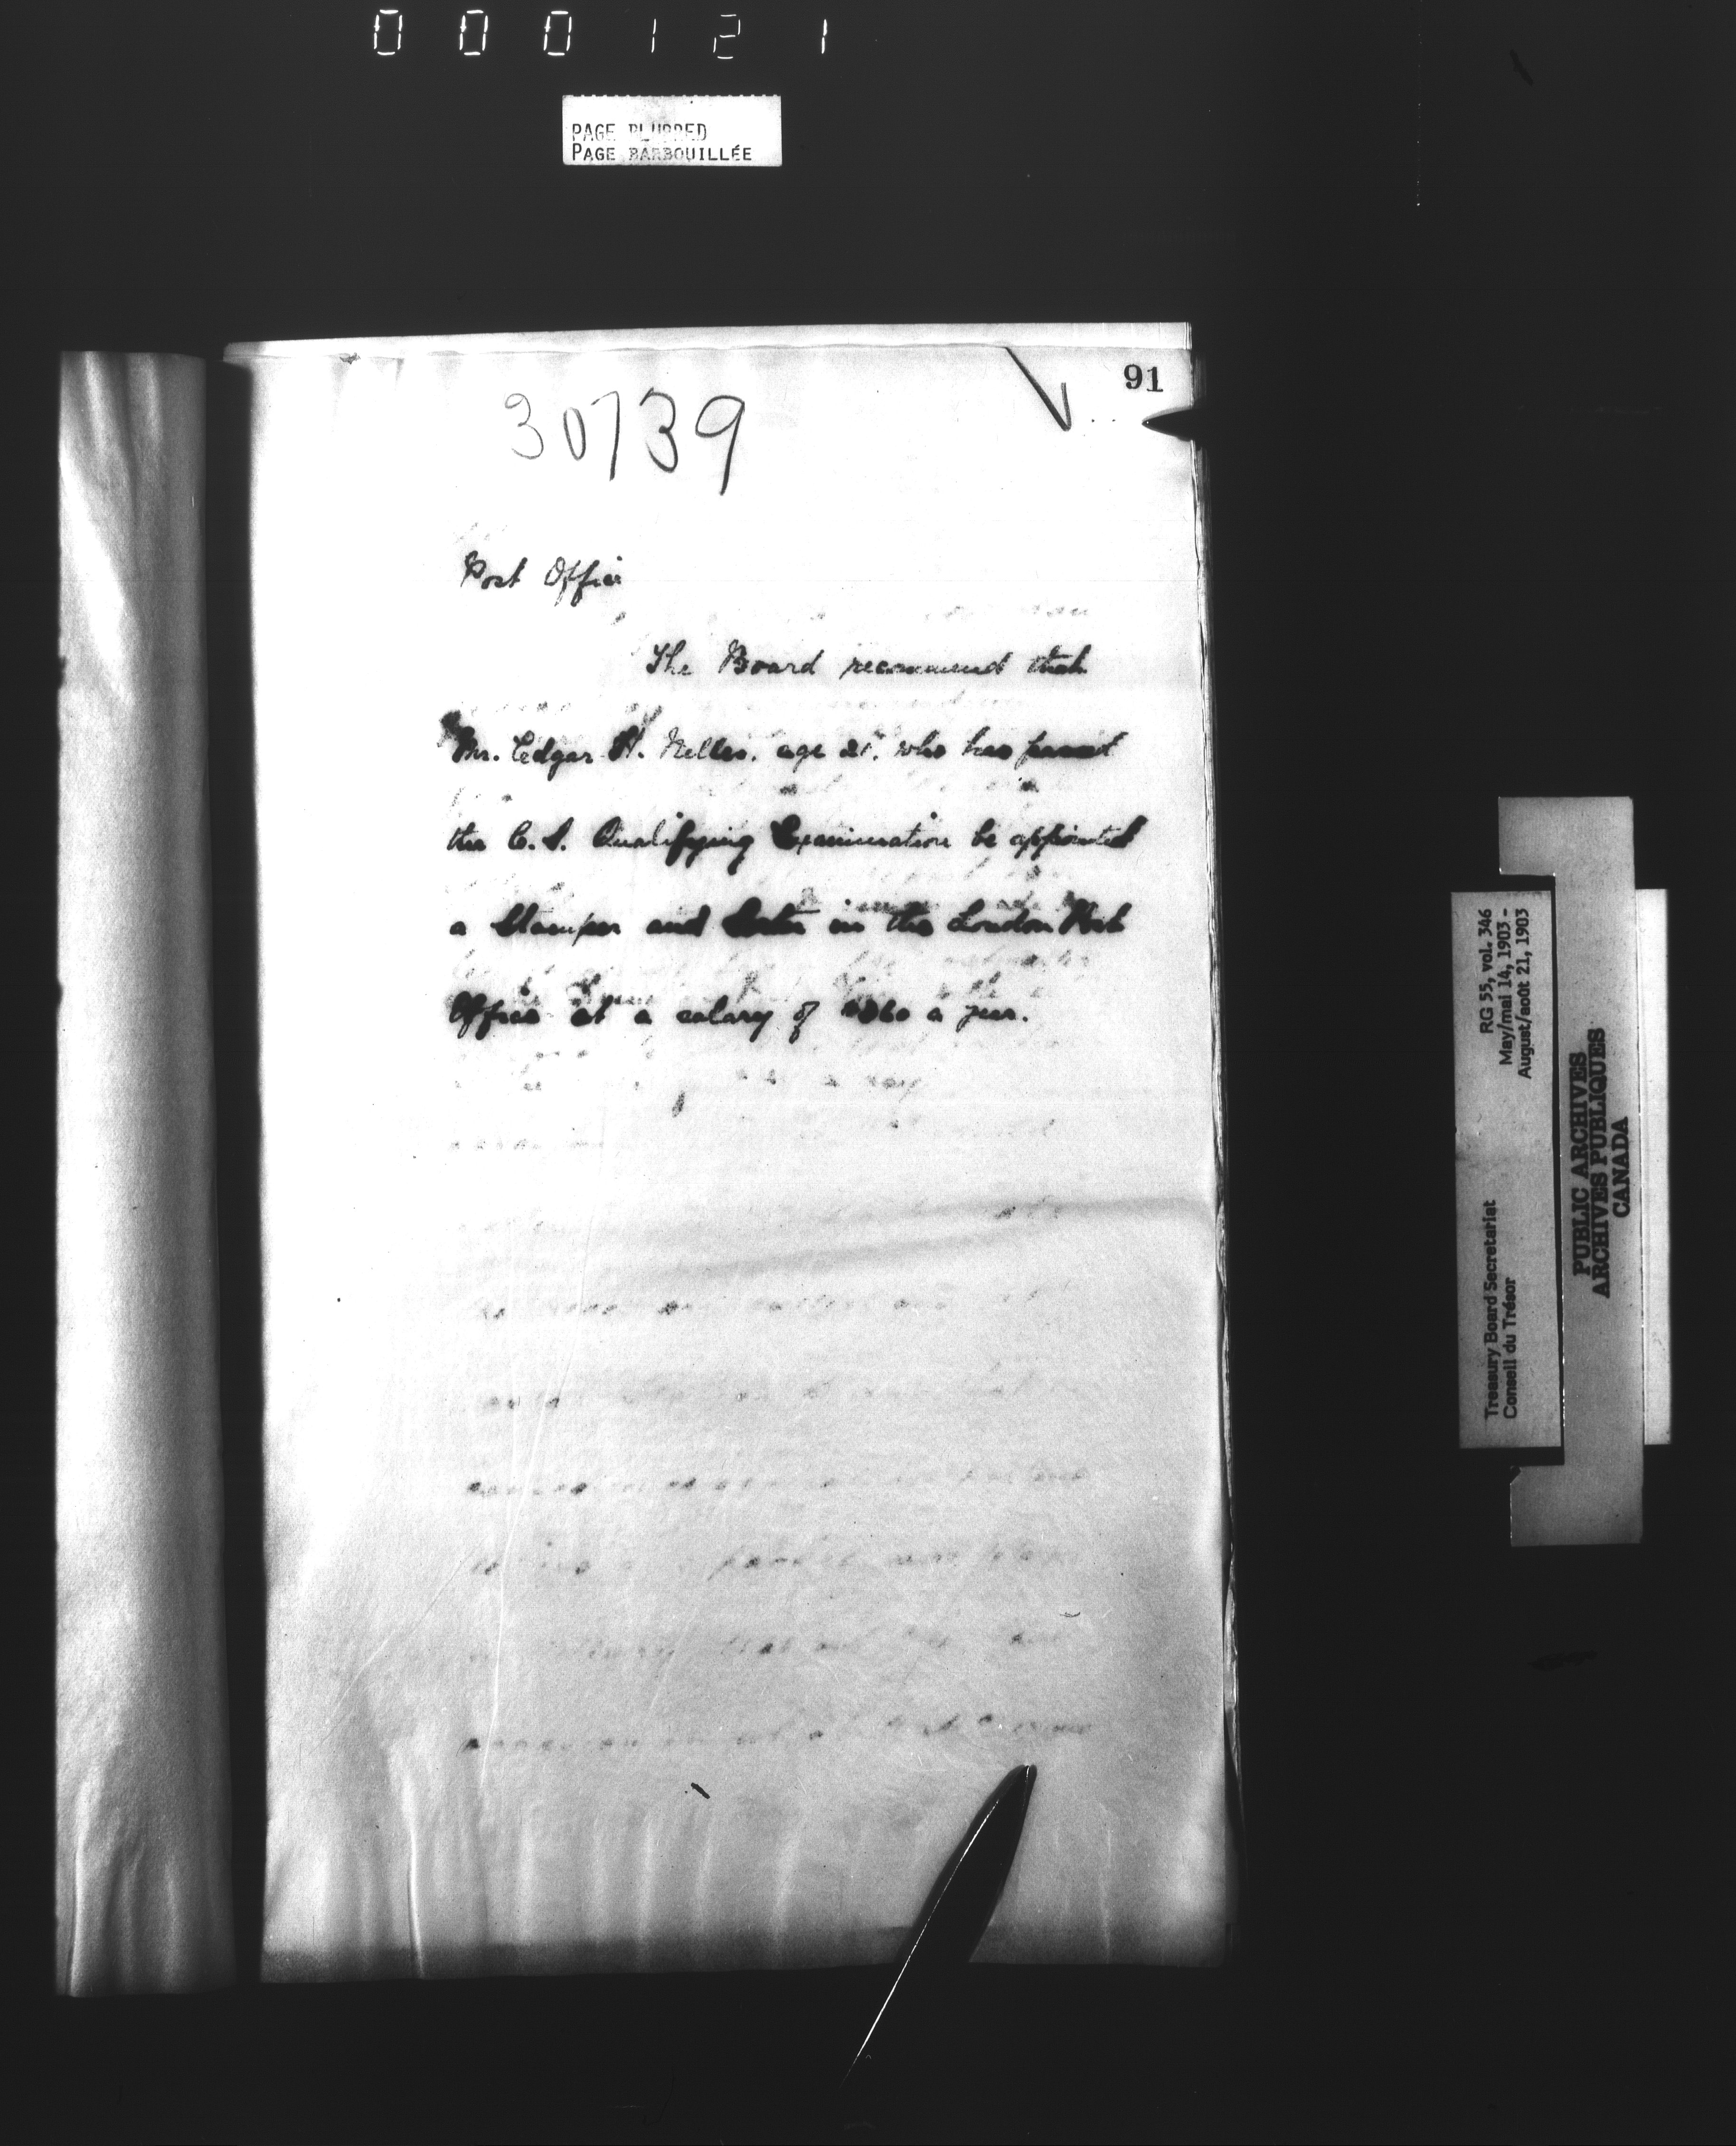 000121
PAGE BLURRED
PAGE BARBOUILLÉE
91
30739
Post Office
The Board recommend that
Mr. Edgar H. Nelles, age 21, who has passed
the C.S. Qualifying Examination be appointed
a Stamper and Sorter in the London Post
Office at a salary of $360 a year.
RG 55, vol. 346
May/mai 14, 1903 -
August/août 21, 1903
Treasury Board Secretariat
Conseil du Trésor
PUBLIC ARCHIVES
ARCHIVES PUBLIQUES
CANADA